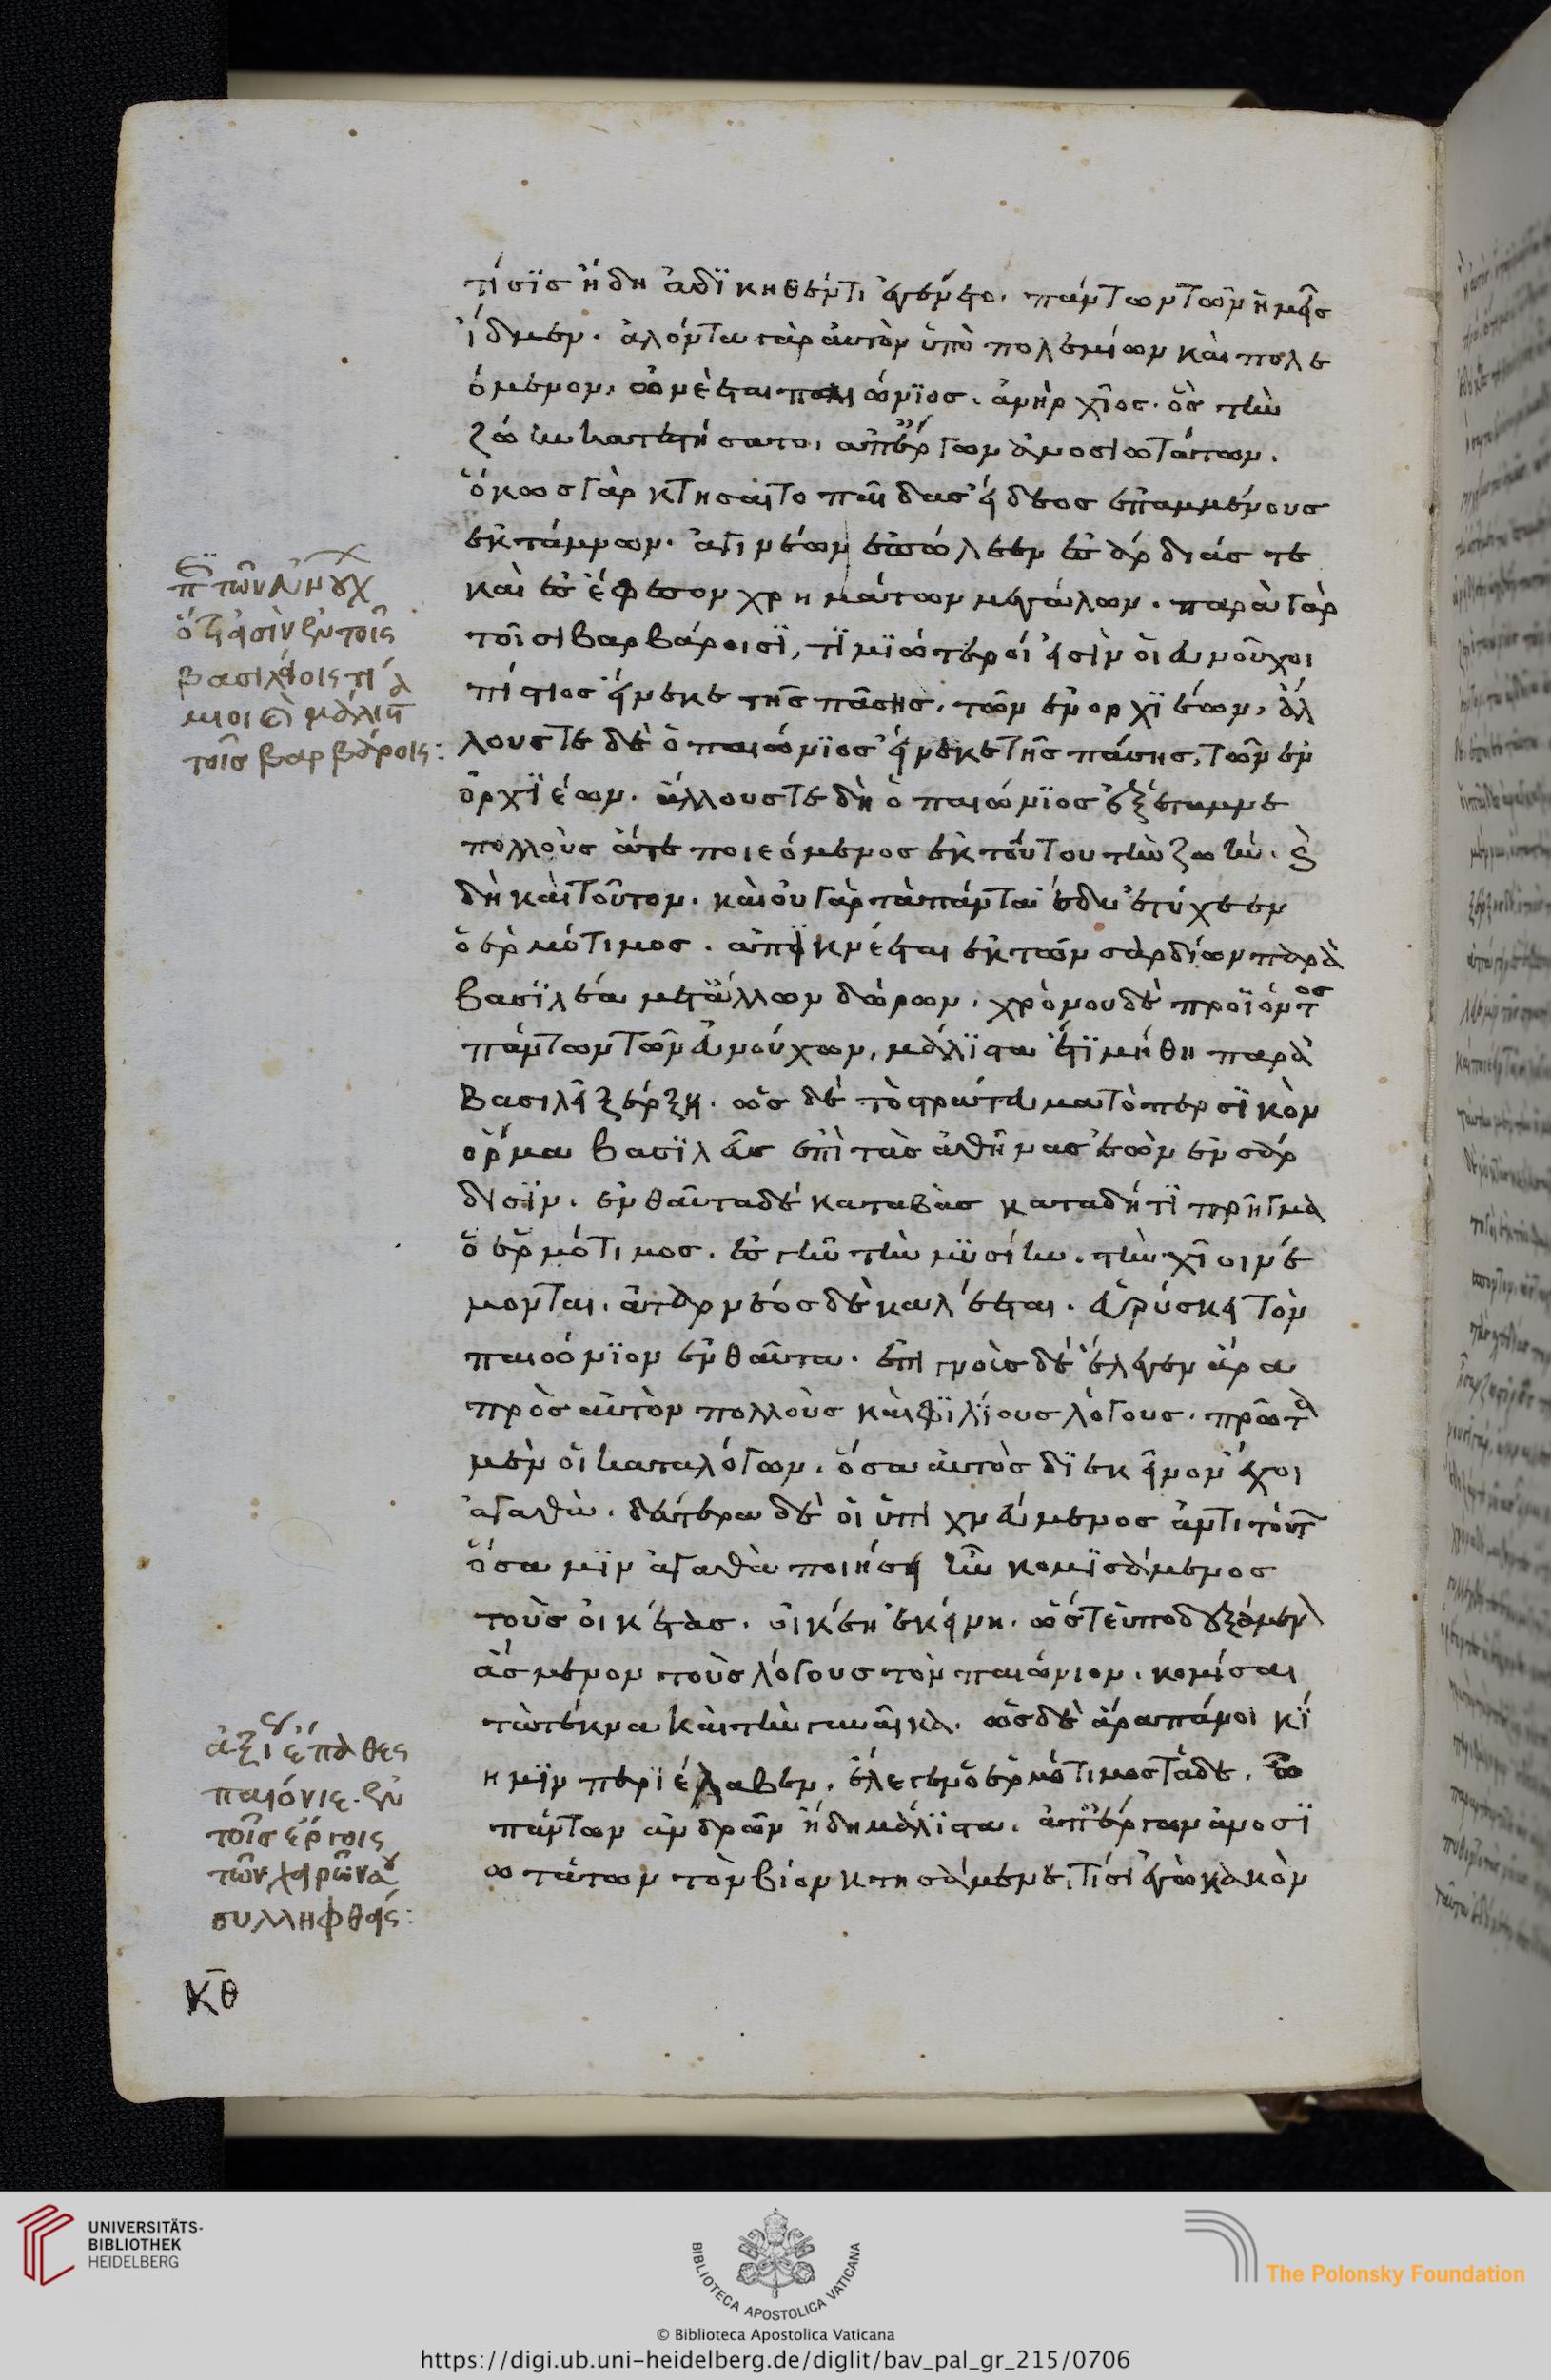 τίσϊς ἤδη ἀδϊκηθέντι ἐγένετο. πάντων τῶν ἡμεῖς
ἴδμεν. ἁλόντα γὰρ αὐτὸν ὑπὸ πολεμίων καὶ πωλε
όμενον, ὠνέεται παιώνϊος. ἀνὴρ χῖος. ὃς τὴν
ζόην κατεστήσατο, ἀπ' ἔργων ἀνοσιωτάτων.
ὅκως γὰρ κτήσαιτο παῖδας εἴδεος ἐπαμμένους
ἐκτάμνων. ἀγινέων ἐπώλεεν ἐς σάρδιάς τε
καὶ ἐς ἔφεσον χρημάτων μεγάλων. παρὰ γὰρ
τοῖσι βαρβάροισϊ, τϊμϊώτεροί εἰσὶν οἱ εὐνοῦχοι
πίστιος εἵνεκε τῆς πάσης. τῶν ἐνορχϊέων, ἄλ
λους τε δὲ ὁ παιώνϊος εἵνεκε τῆς πάσης, τῶν ἐν
ὀρχϊέων. ἄλλους τε δὴ ὁ παιώνϊος ἐξέταμνε
πολλοὺς ἅτε ποιεόμενος ἐκ τούτου τὴν ζωήν. καὶ
δὴ καὶ τοῦτον. καὶ οὐ γὰρ τὰ πάντα ἐδυστύχεεν
ὁ ἑρμότιμος. ἀπϊκνέεται ἐκ τῶν σαρδίων παρὰ
βασϊλέα μετ' ἄλλων δώρων. χρόνου δὲ προϊόντος
πάντων τῶν εὐνούχων, μάλϊστα ἐτϊμήθη παρὰ
βασιλεῖ ξέρξῃ. ὡς δὲ τὸ στράτευμα τὸ περσϊκὸν
ὅρμα βασϊλεὺς ἐπὶ τὰς ἀθήνας ἐὼν ἐν σάρ
δισϊν. ἐνθαῦτα δὲ καταβὰς κατὰ δή τϊ πρῆγμα
ὁ ἑρμότιμος. ἐς γῆν τὴν μϋσίην. τὴν χῖοι νέ
μονται. ἀταρνεὸς δὲ καλέεται. εὑρίσκει τὸν
παιώνϊον ἐνθαῦτα. ἐπιγνοὺς δὲ ἔλεγεν ἄρα
πρὸς αὐτὸν πολλοὺς καὶ φϊλϊους λόγους. πρῶτα
μὲν οἱ καταλέγων. ὅσα αὐτὸς δϊ ἐκεῖνον ἔχοι
ἀγαθά. δεύτερα δὲ οἱ ὑπιχνεύμενος ἀντὶ τούτων
ὅσα μϊν ἀγαθὰ ποιήσει ἢν κομϊσάμενος
τοὺς οἰκέτας. οἰκέῃ ἐκείνῃ. ὥστε ὑποδεξάμενον
ἄσμενον τοὺς λόγους τὸν παιώνιον. κομίσαι
τὰ τέκνα καὶ τὴν γυναῖκα. ὡς δὲ ἄρα πάνοι κϊ
η μϊν περϊέλαβεν. ἔλεγεν ὁ ἑρμότιμος τάδε. ὦ
πάντων ἀνδρῶν ἤδη μάλϊστα. ἀπ' ἔργων ἀνοσϊ
ωτάτων τὸν βίον κτησάμενε, τί σϊ ἐγὼ κακὸν
τῶν εὐνούχ
ὅτι εἰσὶν ἐν τοῖς
βασιλείοις τί
μιοι μάλιστα
τοῖς βαρβάροις:
ἄξια ἔπαθες
παιόνιε. ἐν
τοῖς ἔργοις
τῶν χειρῶν σου
συλληφθείς:
κθ
UNIVERSITÄTS-
BIBLIOTHEK
HEIDELBERG
BIBLIOTECA APOSTOLICA VATICANA
The Polonsky Foundation
© Biblioteca Apostolica Vaticana
https://digi.ub.uni-heidelberg.de/diglit/bav_pal_gr_215/0706